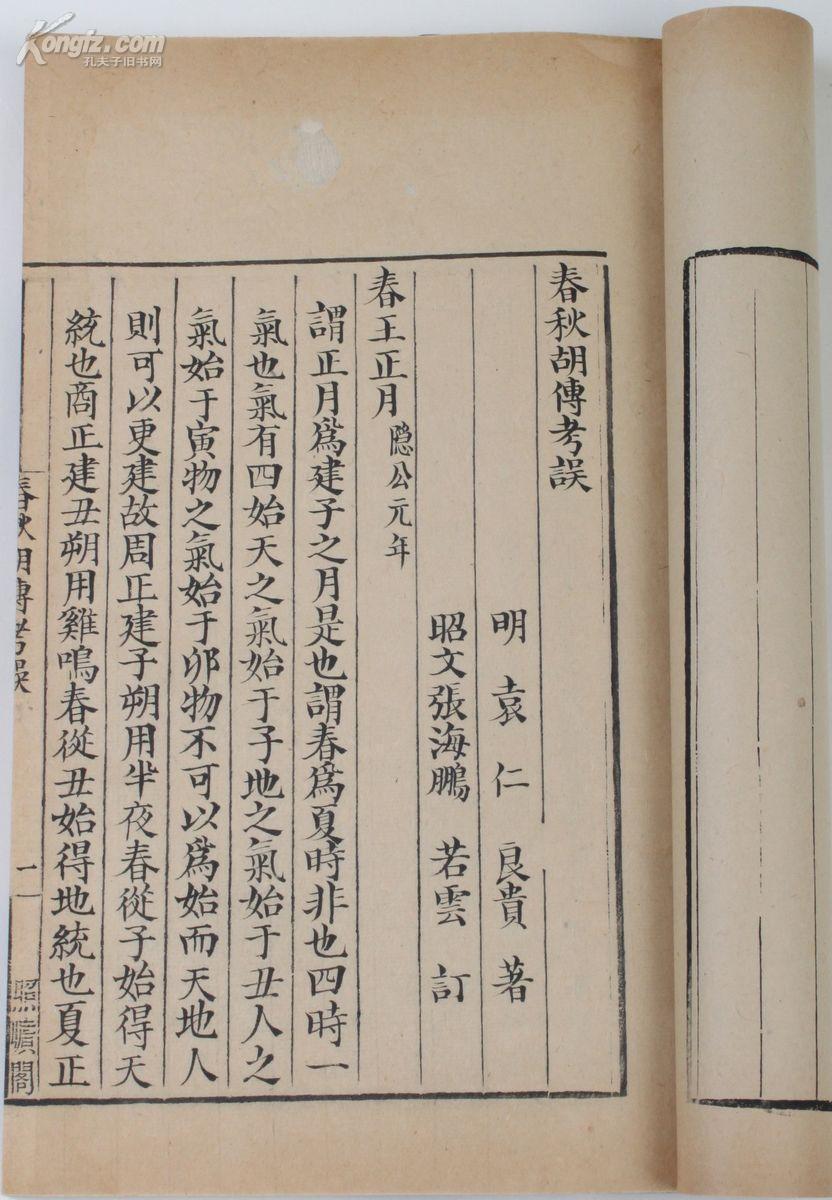 Kongfz.com
孔夫子旧书网
春秋胡傳考誤
明 袁 仁 良貴 著
昭文張海鵬 若雲 訂
春王正月 隐公元年
謂正月爲建子之月是也謂春爲夏時非也四時一
氣也氣有四始天之氣始于子地之氣始于丑人之
氣始于寅物之氣始于卯物不可以爲始而天地人
則可以更建故周正建子朔用半夜春從子始得天
統也商正建丑朔用雞鳴春從丑始得地統也夏正
春秋胡傳考誤
一
照曠閣